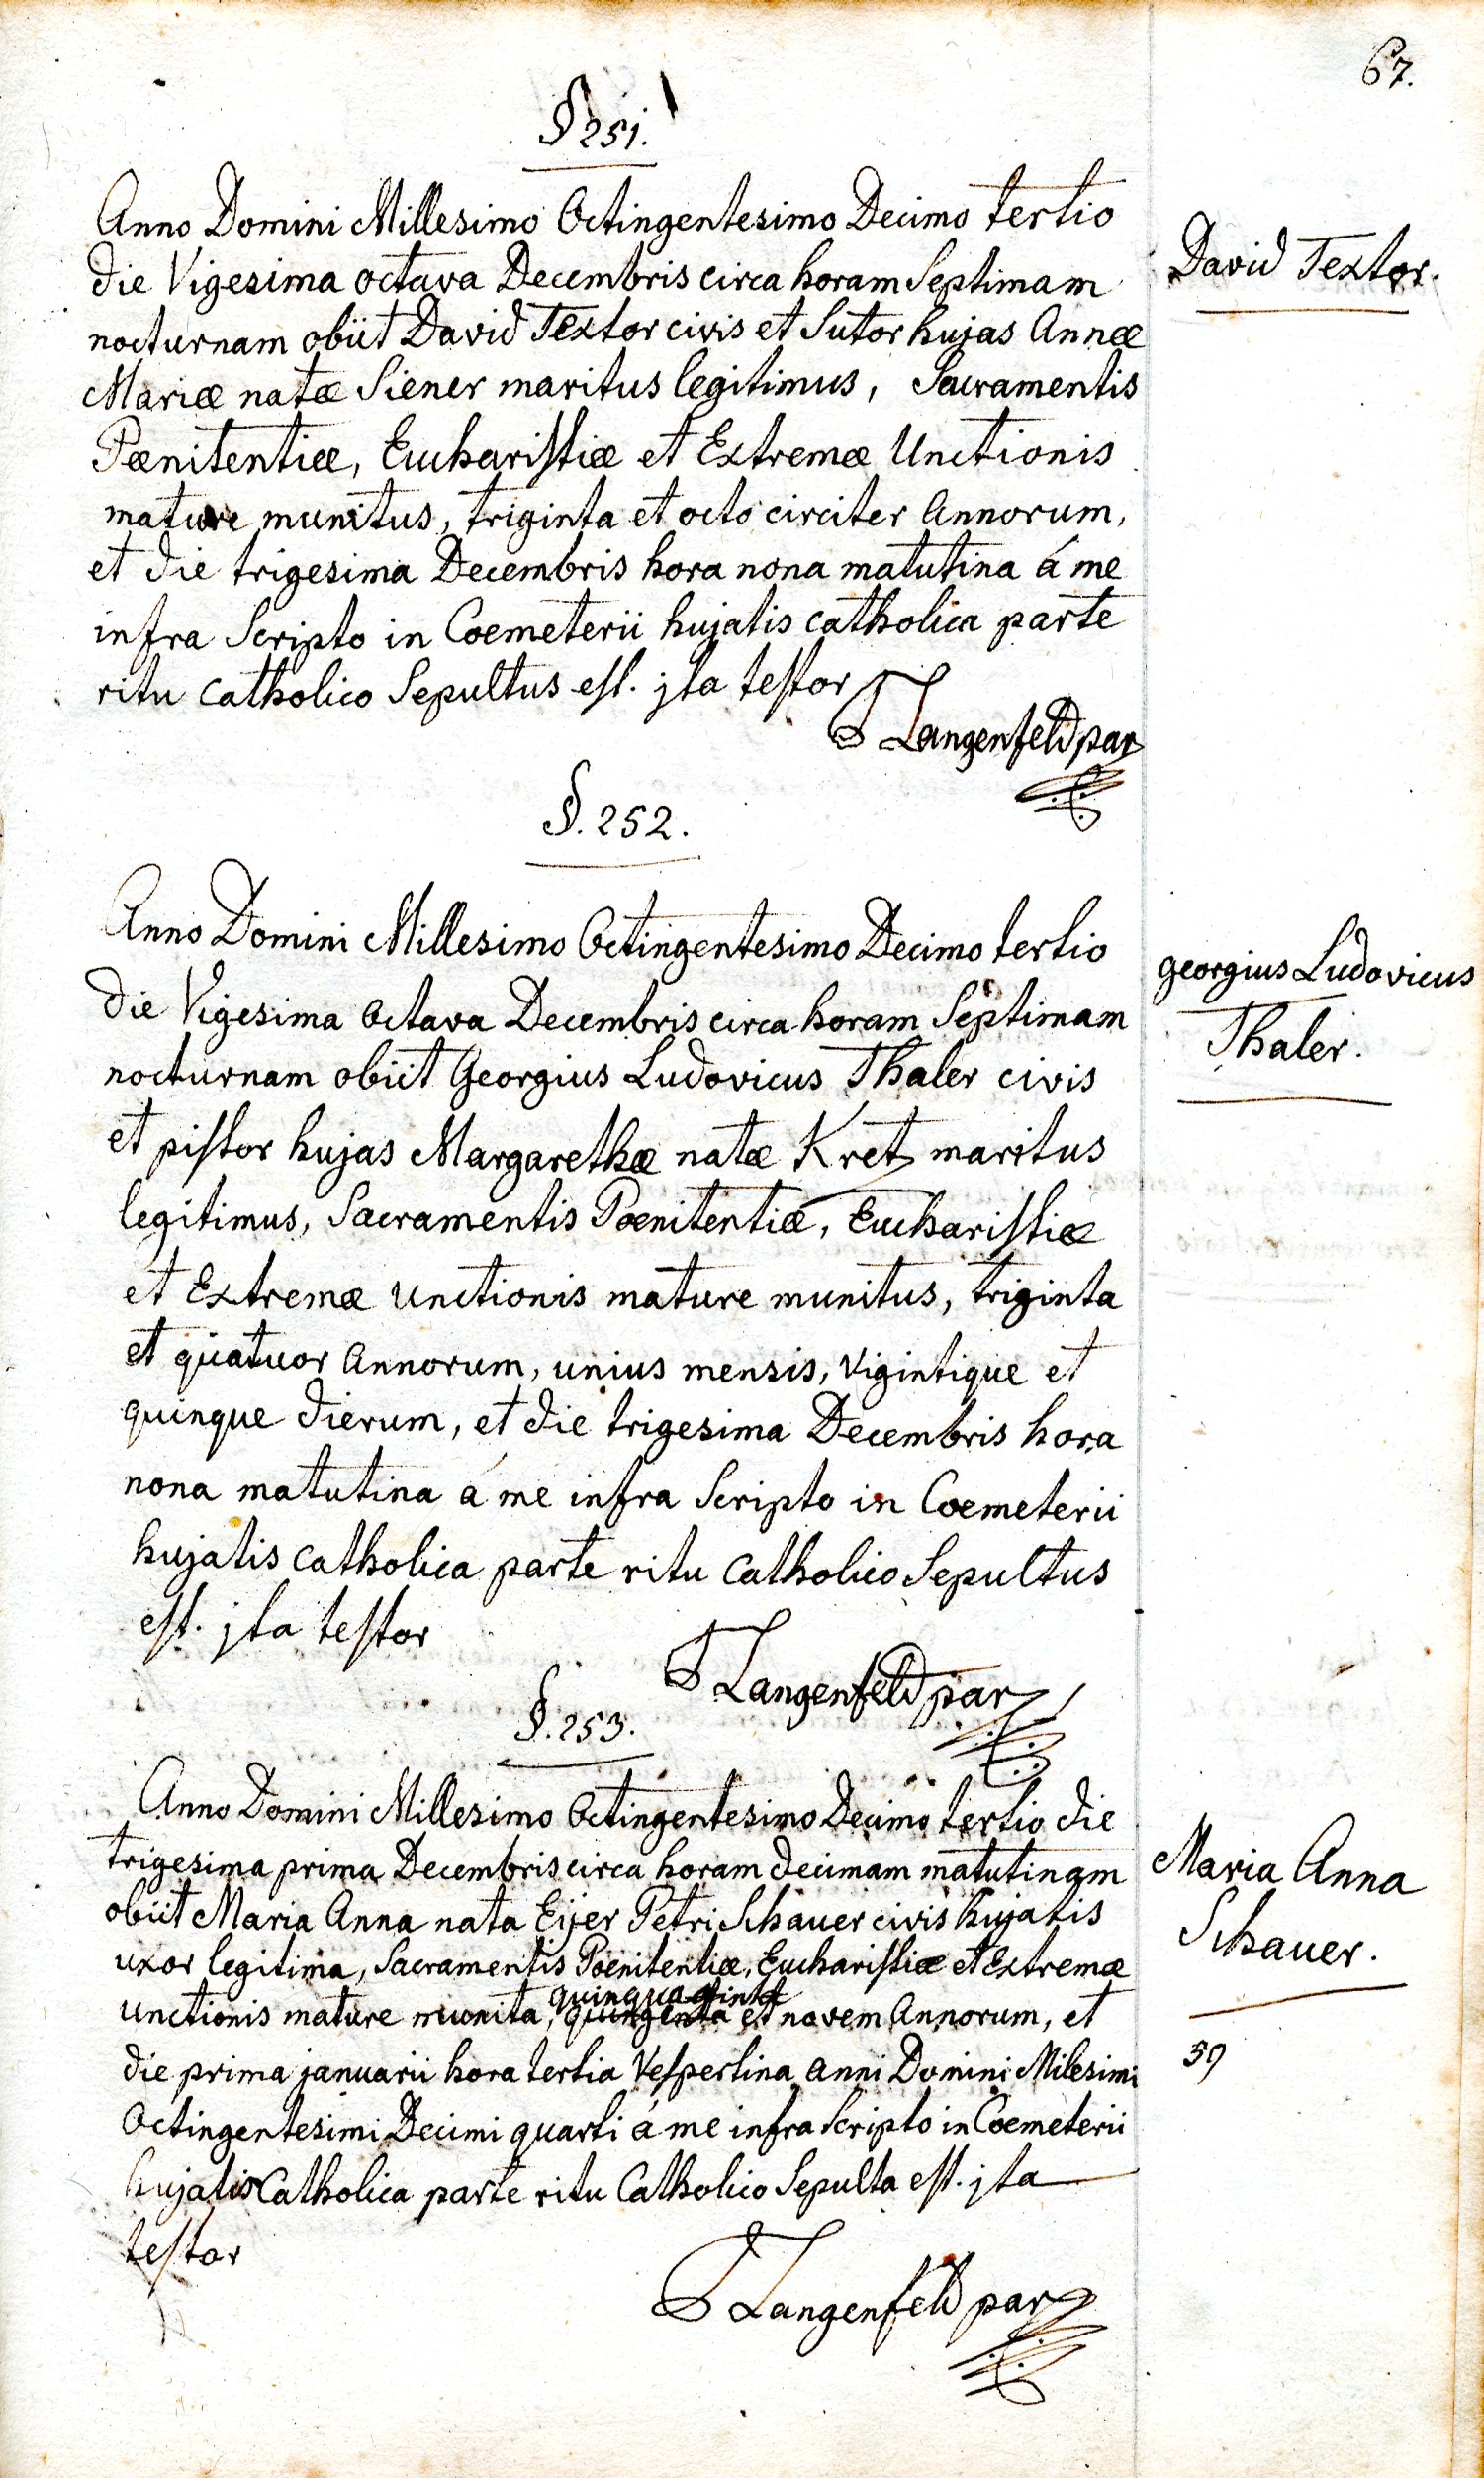 67.
§ 251.
Anno Domini Millesimo Octingentesimo Decimo tertio
David Textor.
die Vigesima octava Decembris circa horam Septimam
nocturnam obiit David Textor civis et Sutor hujas Annæ
Mariæ natæ Siener maritus legitimus, Sacramentis
Pœnitentiæ, Euchariſtiæ et Extremæ Unctionis
mature munitus, triginta et octo circiter Annorum,
et die trigesima Decembris hora nona matutina á me
infra Scripto in Coemeterii hujatis catholica parte
ritu catholico Sepultus eſt. jta teſtor
Langenfeld par
§. 252.
Anno Domini Millesimo Octingentesimo Decimo tertio
georgius Ludovicus
Thaler.
die Vigesima Octava Decembris circa horam Septimam
nocturnam obiit Georgius Ludovicus Thaler civis
et piſtor hujas Margarethæ natæ Kretz maritus
legitimus, Sacramentis Poenitentiæ, Euchariſtiæ
et Extremæ Unctionis mature munitus, triginta
et quatuor Annorum, unius mensis, Vigintique et
quinque dierum, et die trigesima Decembris hora
nona matutina á me infra Scripto in Coemeterii
hujatis catholica parte ritu Catholico Sepultus
eſt. jta teſtor
Langenfeld par
§. 253.
Anno Domini Millesimo Octingentesimo Decimo tertio die
trigesima prima Decembris circa horam decimam matutinam
Maria Anna
Schauer.
obiit Maria Anna nata Eijer Petri Schauer civis hujatis
uxor legitima, Sacramentis Poenitentiæ, Euchariſtiæ et Extremæ
quinquaginta
Unctionis mature munita, quingenta et novem Annorum, et
59
die prima januarii hora tertia Veſpertina anni Domini Milesimi
Octingentesimi Decimi quarti á me infra Scripto in Coemeterii
hujatis Catholica parte ritu Catholico Sepulta eſt. jta
teſtor
Langenfeld par